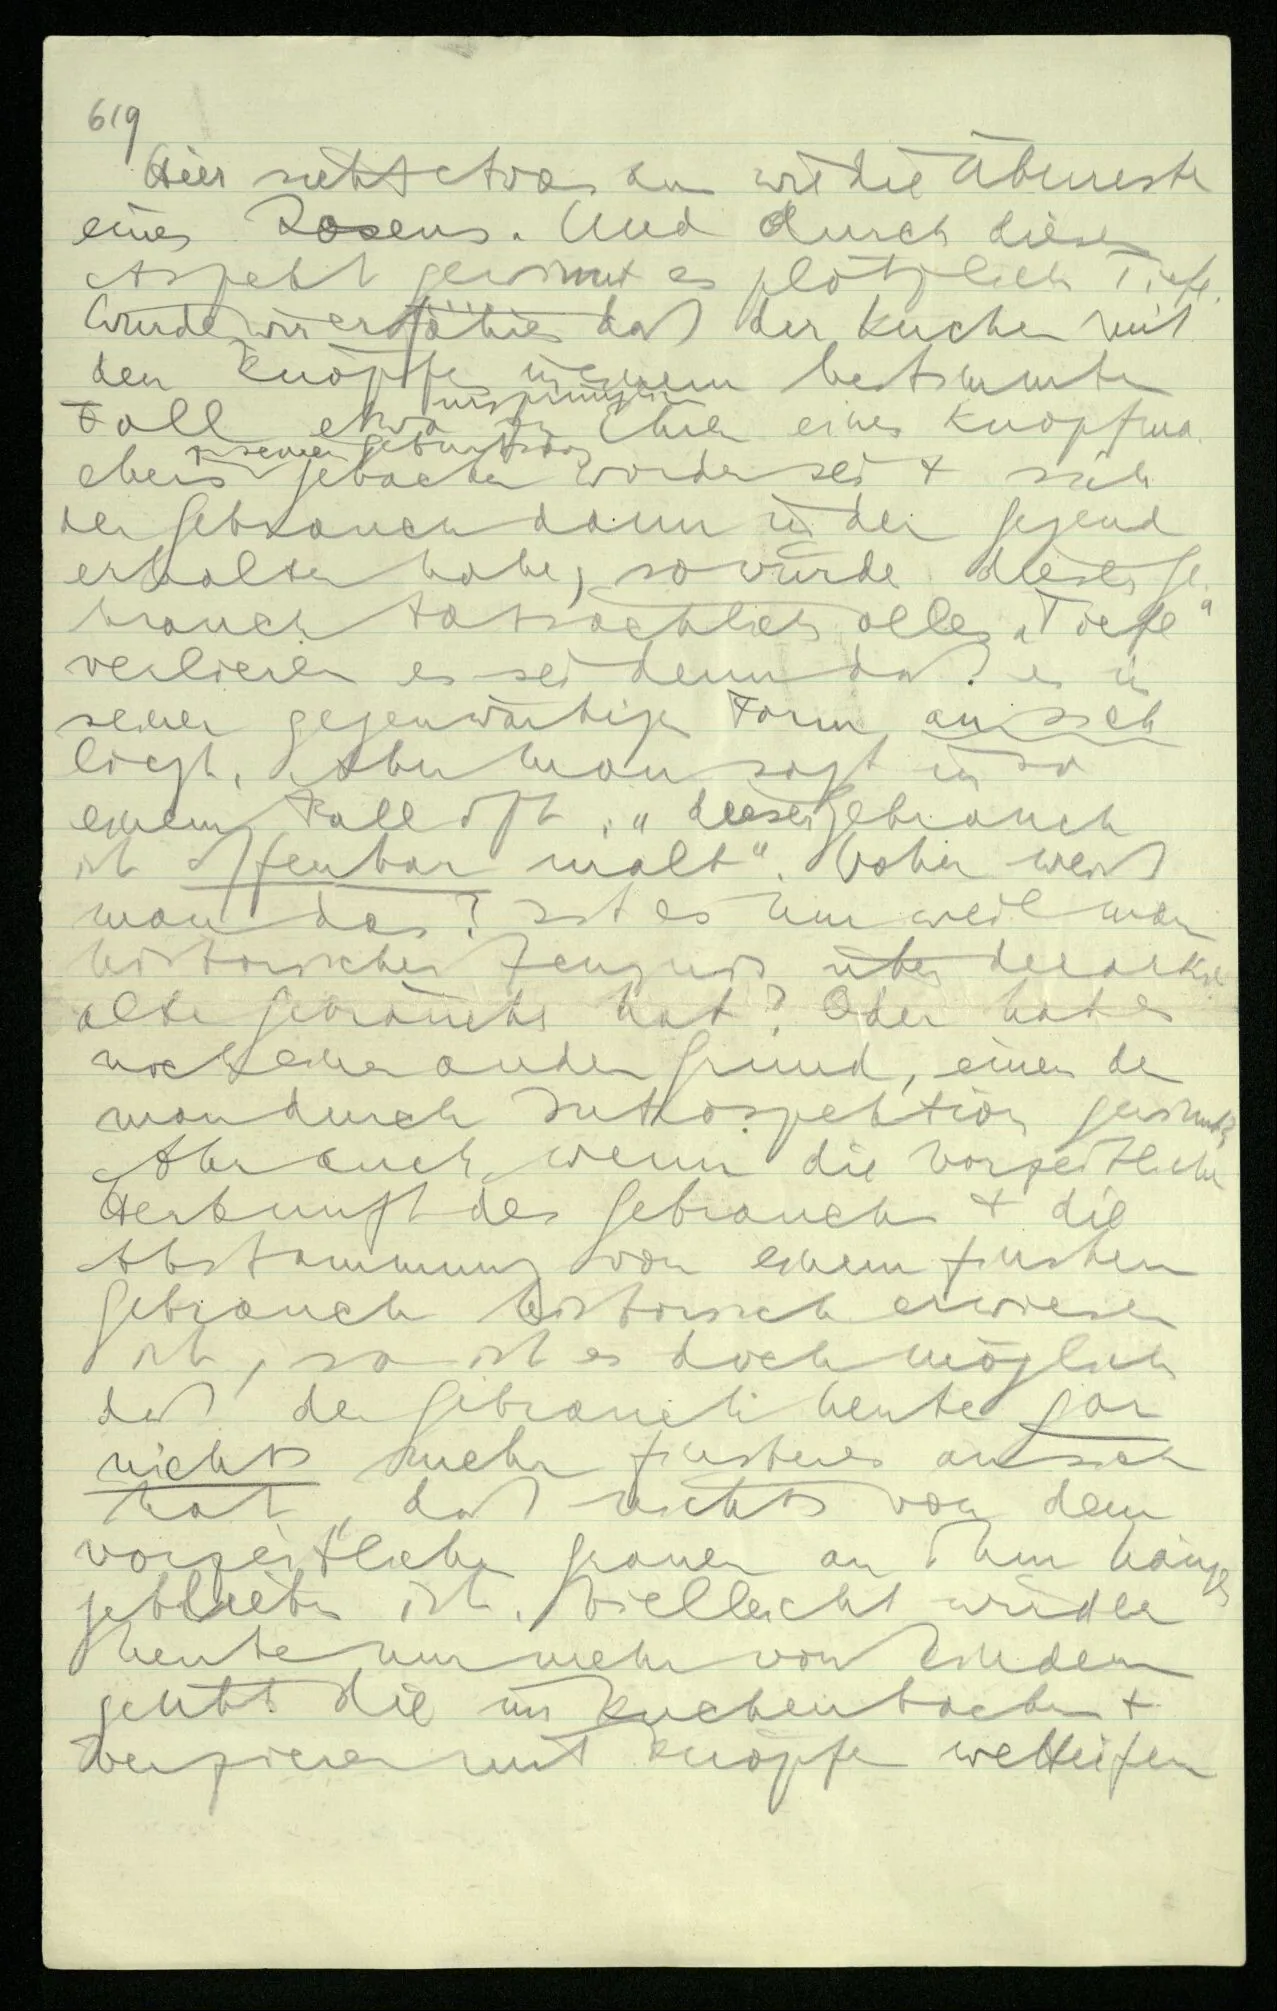 619
Hier sieht etwas aus wie die Überreste
eines Losens. Und durch diesen
Aspekt gewinnt es plötzlich Tiefe.
Würden wir erfahren daß der Kuchen mit
den Knöpfen in einem bestimmten
Fall etwa ursprünglich zu Ehren eines Knopfma-
chers zu seinem Geburtstag gebacken worden sei + sich
der Gebrauch dann in der Gegend
erhalten habe, so würde dieser Ge-
brauch tatsächlich alles „Tiefe“
verlieren es sei denn daß es in
seiner gegenwärtigen Form an sich
liegt. Aber man sagt in so
einem Fall oft: „dieser Gebrauch
ist offenbar uralt“. Woher weiß
man das? Ist es nur weil man
historisches Zeugnis über derartige
alte Gebräuche hat? Oder hat es
noch einen andern Grund, einen den
man durch Introspektion gewinnt?
Aber auch wenn die vorzeitliche
Herkunft des Gebrauchs + die
Abstammung von einem finstern
Gebrauch historisch erwiesen
ist, so ist es doch möglich
daß der Gebrauch heute gar
nichts mehr finsteres an sich
hat, daß nichts von dem
vorzeitlichen Grauen an ihm hängen
geblieben ist. Vielleicht wird er
heute nur mehr von Kindern
geübt die im Kuchenbacken +
Verzieren mit Knöpfen wetteifern